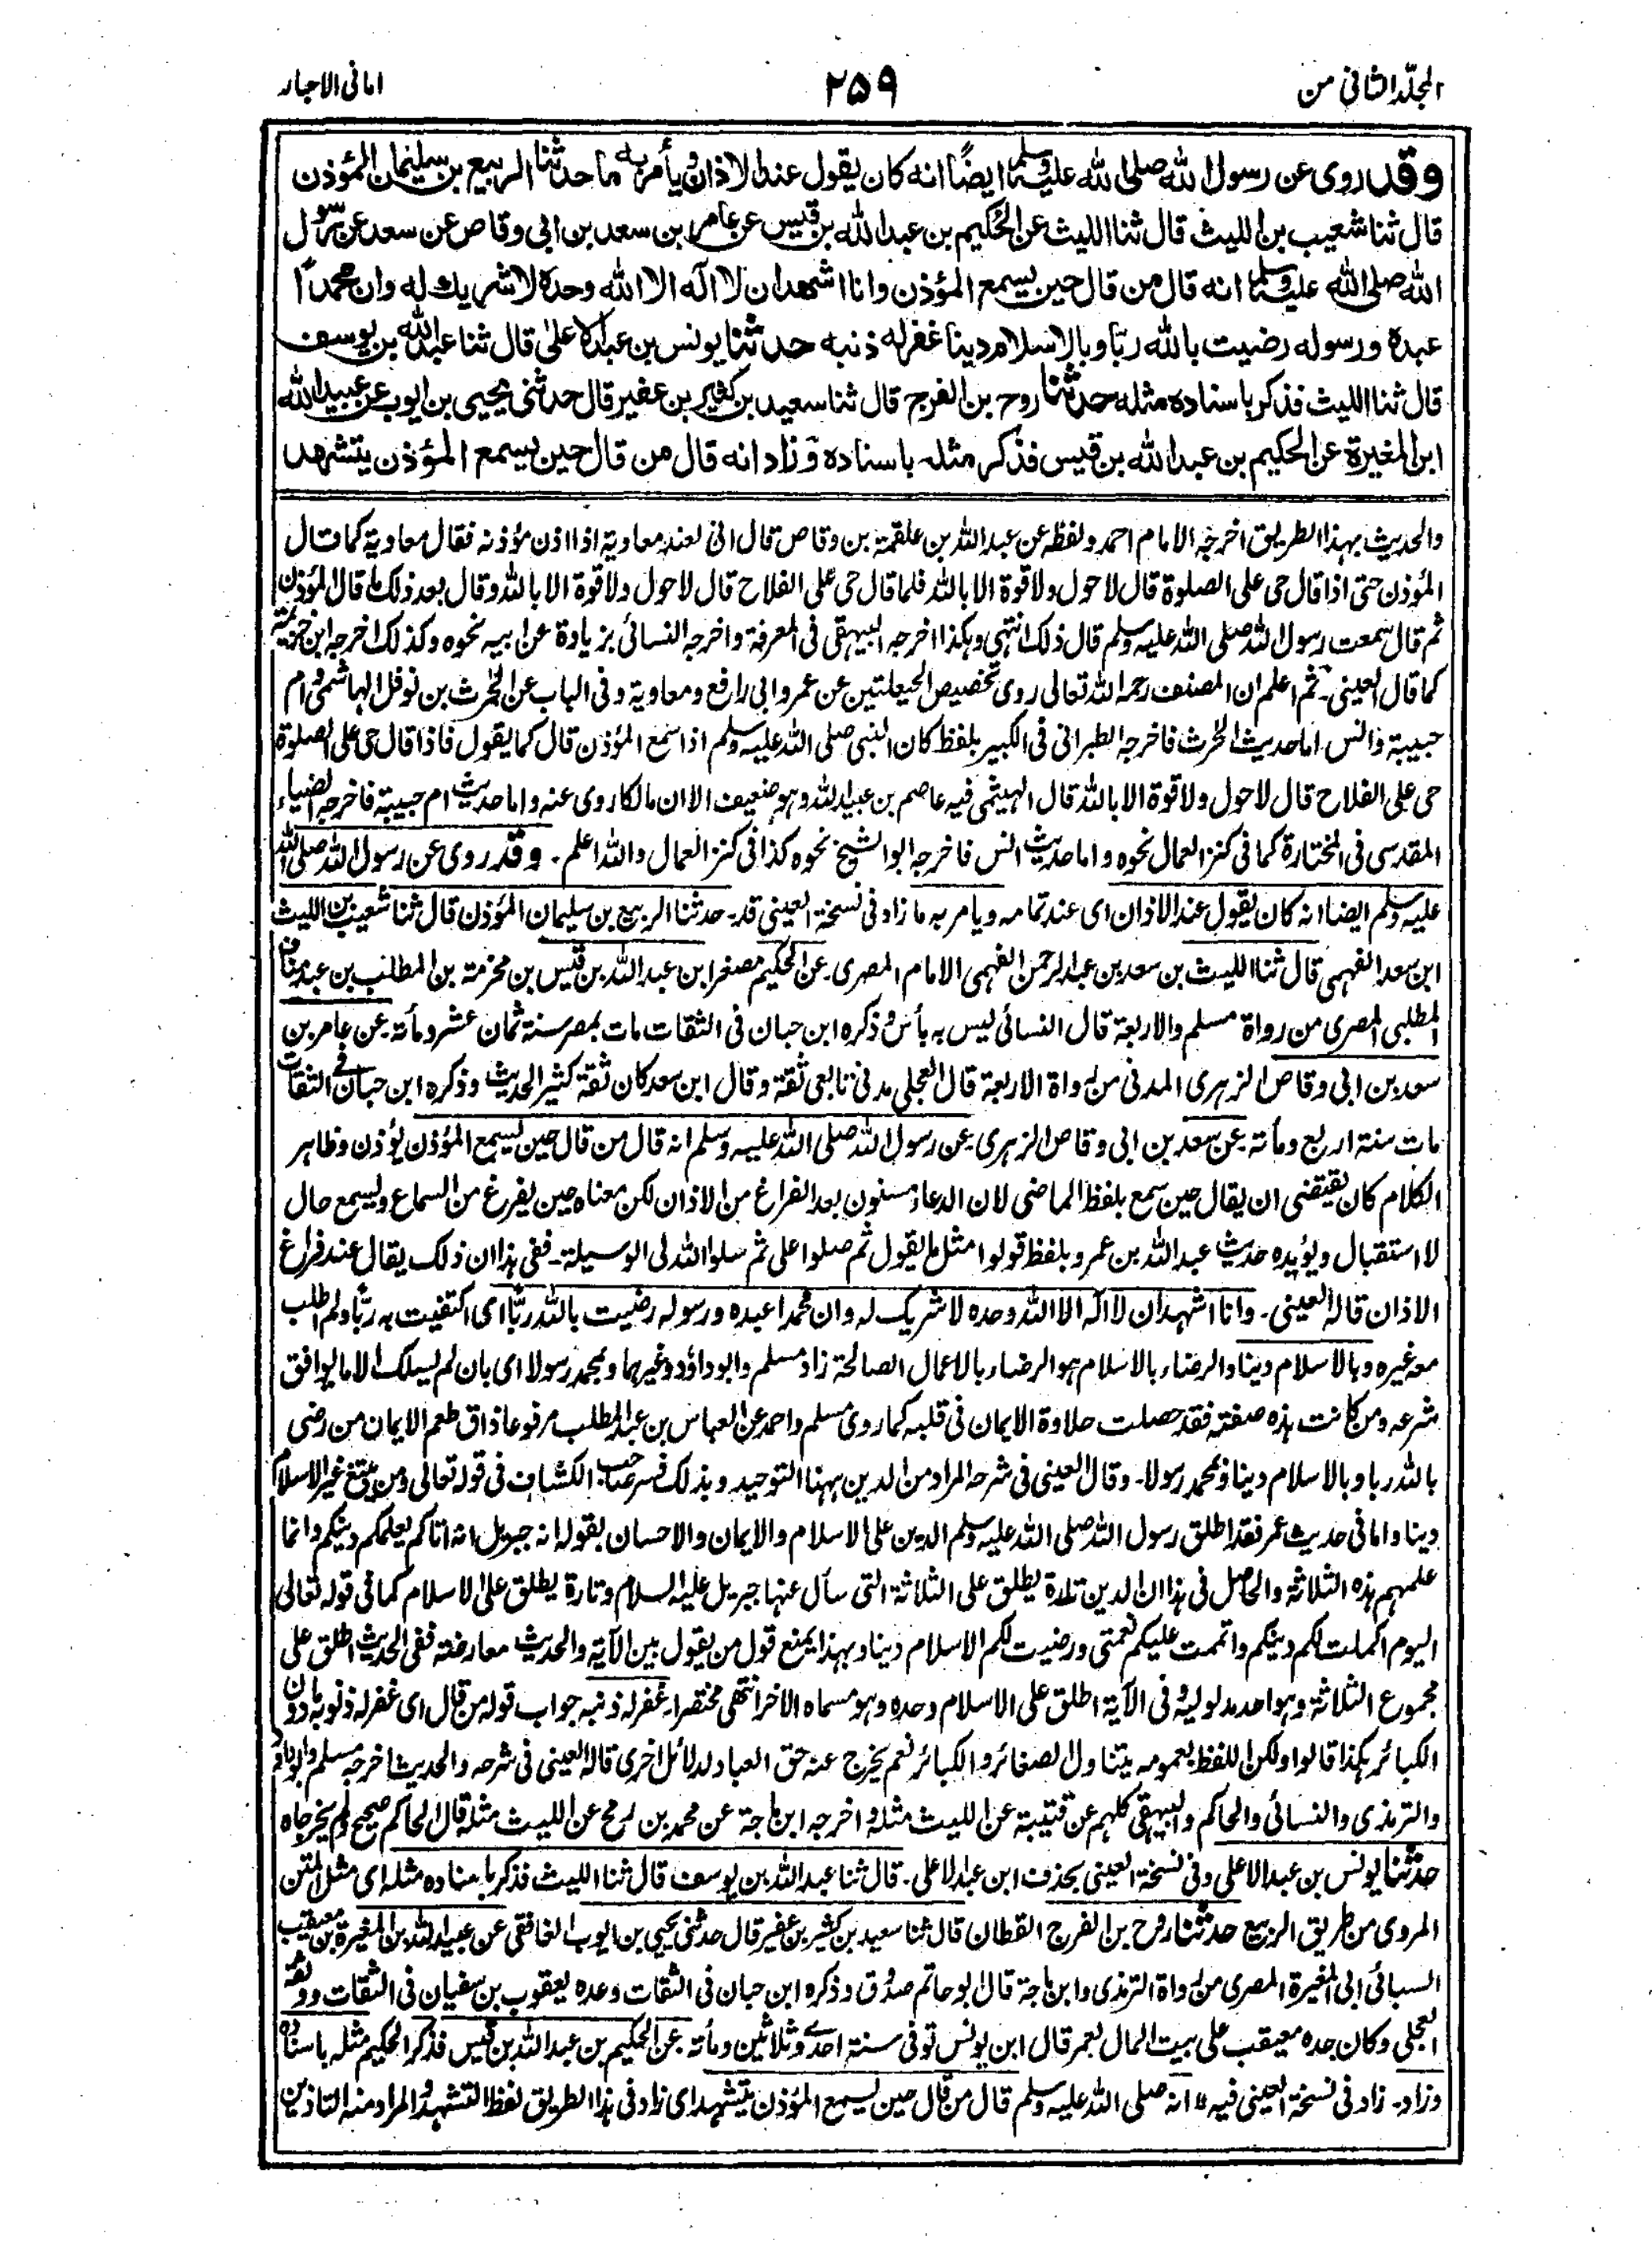 المجلد الثانی من
۲۵۹
امانی الاحبار
وقد روی عن رسول الله صلی الله علیه وسلم ایضًا انه کان یقول عند الاذان ویأمر به ما حدثنا الربیع بن سلیمان المؤذن
قال ثنا شعیب بن اللیث قال ثنا اللیث عن الحُکیم بن عبد الله بن قیس عن عامر بن سعد بن ابی وقاص عن سعد عن رسول
الله صلی الله علیه وسلم انه قال من قال حین یسمع المؤذن وانا اشهد ان لا اله الا الله وحده لا شریك له وان محمدًا
عبده ورسوله رضیت بالله ربّا وبالاسلام دینا غفر له ذنبه حدثنا یونس بن عبد الاعلیٰ قال ثنا عبد الله بن یوسف
قال ثنا اللیث فذکر باسناده مثله حدثنا روح بن الفرج قال ثنا سعید بن کثیر بن عفیر قال حدثنی یحیی بن ایوب عن عبید الله
ابن المغیرة عن الحکیم بن عبد الله بن قیس فذکر مثله باسناده وزاد انه قال من قال حین یسمع المؤذن یتشهد
والحدیث بهذا الطریق اخرجه الامام احمد ولفظه عن عبد الله بن علقمة بن وقاص قال انی لعند معاویة اذا اذن مؤذنه فقال معاویة کما قال
المؤذن حتی اذا قال حی علی الصلوة قال لا حول ولا قوة الا بالله فلما قال حی علی الفلاح قال لا حول ولا قوة الا بالله وقال بعد ذلک ما قال المؤذن
ثم قال سمعت رسول الله صلی الله علیه وسلم قال ذلک انتهی وهکذا اخرجه البیهقی فی المعرفة واخرجه النسائی بزیادة عن ابیه نحوه وکذلک اخرجه ابن خزیمة
کما قال العینی۔ ثم اعلم ان المصنف رحمه الله تعالی روی تخصیص الحیعلتین عن عمرو ابی رافع ومعاویة وفی الباب عن الحٰرث بن نوفل الهاشمی وام
حبیبة وانس اما حدیث الحٰرث فاخرجه الطبرانی فی الکبیر بلفظ کان النبی صلی الله علیه وسلم اذا سمع المؤذن قال کما یقول فاذا قال حی علی الصلوة
حی علی الفلاح قال لا حول ولا قوة الا بالله قال الهیثمی فیه عاصم بن عبید الله وهو ضعیف الا ان مالکا روی عنه واما حدیث ام حبیبة فاخرجه الضیاء
المقدسی فی المختارة کما فی کنز العمال نحوه واما حدیث انس فاخرجه ابو الشیخ نحوه کذا فی کنز العمال والله اعلم . وقد روی عن رسول الله صلی الله
علیه وسلم ایضا انه کان یقول عند الاذان ای عند تمامه ویامر به ما زاد فی نسخة العینی قد۔ حدثنا الربیع بن سلیمان المؤذن قال ثنا شعیب بن اللیث
ابن سعد الفهمی قال ثنا اللیث بن سعد بن عبد الرحمن الفهمی الامام المصری۔ عن الحکیم مصغرا ابن عبد الله بن قیس بن مخرمة بن المطلب بن عبد مناف
المطلبی المصری من رواة مسلم والاربعة قال النسائی لیس به بأس وذکره ابن حبان فی الثقات مات بمصر سنة ثمان عشر ومأته۔ عن عامر بن
سعد بن ابی وقاص الزهری المدنی من رواة الاربعة قال العجلی مدنی تابعی ثقة وقال ابن سعد کان ثقة کثیر الحدیث وذکره ابن حبان فی الثقات
مات سنة اربع ومأته۔ عن سعد بن ابی وقاص الزهری۔ عن رسول الله صلی الله علیه وسلم انه قال من قال حین یسمع المؤذن یؤذن وظاهر
الکلام کان یقتضی ان یقال حین سمع بلفظ الماضی لان الدعاء مسنون بعد الفراغ من الاذان لکن معناه حین یفرغ من السماع ویسمع حال
لا استقبال ویؤیده حدیث عبد الله بن عمرو بلفظ قولوا مثل ما یقول ثم صلوا علی ثم سلوا الله لی الوسیلة۔ ففی هذا ان ذلک یقال عند فراغ
الاذان قاله العینی۔ وانا اشهد ان لا اله الا الله وحده لا شریک له وان محمدا عبده ورسوله رضیت بالله ربّا ای اکتفیت به ربّا ولم اطلب
معه غیره وبالاسلام دینا والرضاء بالاسلام هو الرضاء بالاعمال الصالحة زاد مسلم وابو داؤد وغیرهما وبمحمد رسولا ای بان لم یسلک الا ما یوافق
شرعه ومن کانت هذه صفته فقد حصلت حلاوة الایمان فی قلبه کما روی مسلم واحمد عن العباس بن عبد المطلب مرفوعا ذاق طعم الایمان من رضی
بالله ربا وبالاسلام دینا وبمحمد رسولا۔ وقال العینی فی شرحه المراد من الدین ههنا التوحید وبذلک فسر صاحب الکشاف فی قوله تعالی ومن یبتغ غیر الاسلام
دینا واما فی حدیث عمر فقد اطلق رسول الله صلی الله علیه وسلم الدین علی الاسلام والایمان والاحسان بقوله انه جبریل انه اتاکم یعلمکم دینکم وانما
علمهم هذه الثلاثة والحاصل فی هذا ان الدین تارة یطلق علی الثلاثة التی سأل عنها جبریل علیه السلام وتارة یطلق علی الاسلام کما فی قوله تعالی
الیوم اکملت لکم دینکم واتممت علیکم نعمتی ورضیت لکم الاسلام دینا وبهذا یمنع قول من یقول بین الآیة والحدیث معارضة ففی الحدیث اطلق علی
مجموع الثلاثة وهو احد مدلولیه وفی الآیة اطلق علی الاسلام وحده وهو مسماه الاخر انتهی مختصرا۔ غفر له ذنبه جواب قوله من قال ای غفر له ذنوبه ما دون
الکبائر هکذا قالوا ولکن اللفظ بعمومه یتناول الصغائر والکبائر نعم یخرج عنه حق العباد لدلائل اخری قاله العینی فی شرحه والحدیث اخرجه مسلم وابو داؤد
والترمذی والنسائی والحاکم والبیهقی کلهم عن قتیبة عن اللیث مثله واخرجه ابن ماجة عن محمد بن رمح عن اللیث مثله قال الحاکم صحیح ولم یخرجاه
حدثنا یونس بن عبد الاعلی وفی نسخة العینی بحذف ابن عبد الاعلی . قال ثنا عبد الله بن یوسف قال ثنا اللیث فذکر باسناده مثله ای مثل المتن
المروی من طریق الربیع حدثنا روح بن الفرج القطان قال ثنا سعید بن کثیر بن عفیر قال حدثنی یحیی بن ایوب الغافقی عن عبید الله بن المغیرة بن معیقب
السبائی ابی المغیرة المصری من رواة الترمذی وابن ماجة قال ابو حاتم صدوق وذکره ابن حبان فی الثقات وعده یعقوب بن سفیان فی الثقات ووثقه
العجلی وکان جده معیقب علی بیت المال لعمر قال ابن یونس توفی سنة احدی وثلاثین ومأته۔ عن الحکیم بن عبد الله بن قیس فذکر الحکیم مثله باسناده
وزاد۔ زاد فی نسخة العینی فیه " انه صلی الله علیه وسلم قال من قال حین یسمع المؤذن یتشهد ای زاد فی هذا الطریق لفظ التشهد والمراد منه التاذین